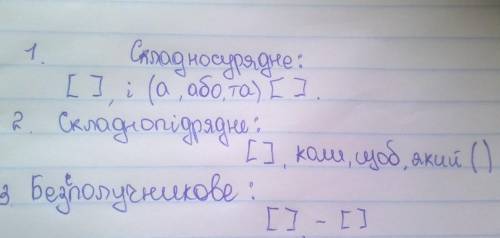 1. Складносурядне:
[ ], і (а, або, та) [ ].
2. Складнопідрядне:
[ ], коли, щоб, який ( )
3. Безсполучникове:
[ ] - [ ]